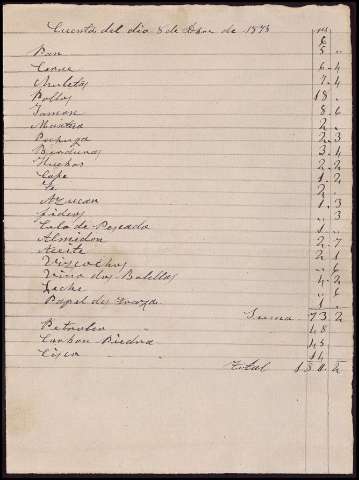 Cuenta del dia 8 de Dbre de 1873
Pan 5 "
Carne 6 4
Chuletas 7 4
Pollos 18 "
Jamon 8 6
Manteca 2 "
Pechuga 2 3
Berduras 3 4
Huebos 2 2
Cafe 1 2
Te 2
Azucar 1 3
fideos " 3
Cola de Pescado 1 "
Almidon 2 7
Aceite 2 1
Viscochos " 6
Vino dos Botellas 4 2
Leche " 6
Papel de Fraza 1 "
Suma 73 2
Petroleo 48
Carbon Piedra 45
Cisco 14
Total